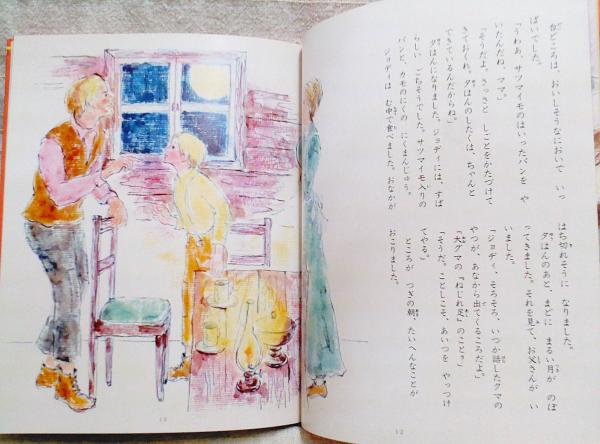 台どころは、おいしそうなにおいで いっ
ぱいでした。
「うわあ、サツマイモのはいったパンを や
いたんだね、ママ。」
「そうだよ。さっさと しごとをかたづけて
きておくれ。夕はんのしたくは、ちゃんと
できているんだからね。」
夕はんになりました。ジョディには、すば
らしい ごちそうでした。サツマイモ入りの
パンと、カモのにくの にくまんじゅう。
ジョディは む中で食べました。おなかが
はち切れそうに なりました。
夕はんのあと、まどに まるい月が のぼ
ってきました。それを見て、お父さんが い
いました。
「ジョディ、そろそろ、いつか話したクマの
やつが、あなから出てくるころだよ。」
「大グマの『ねじれ足』のこと？」
「そうだ、ことしこそ、あいつを やっつけ
てやる。」
ところが つぎの朝、たいへんなことが
おこりました。
13
12